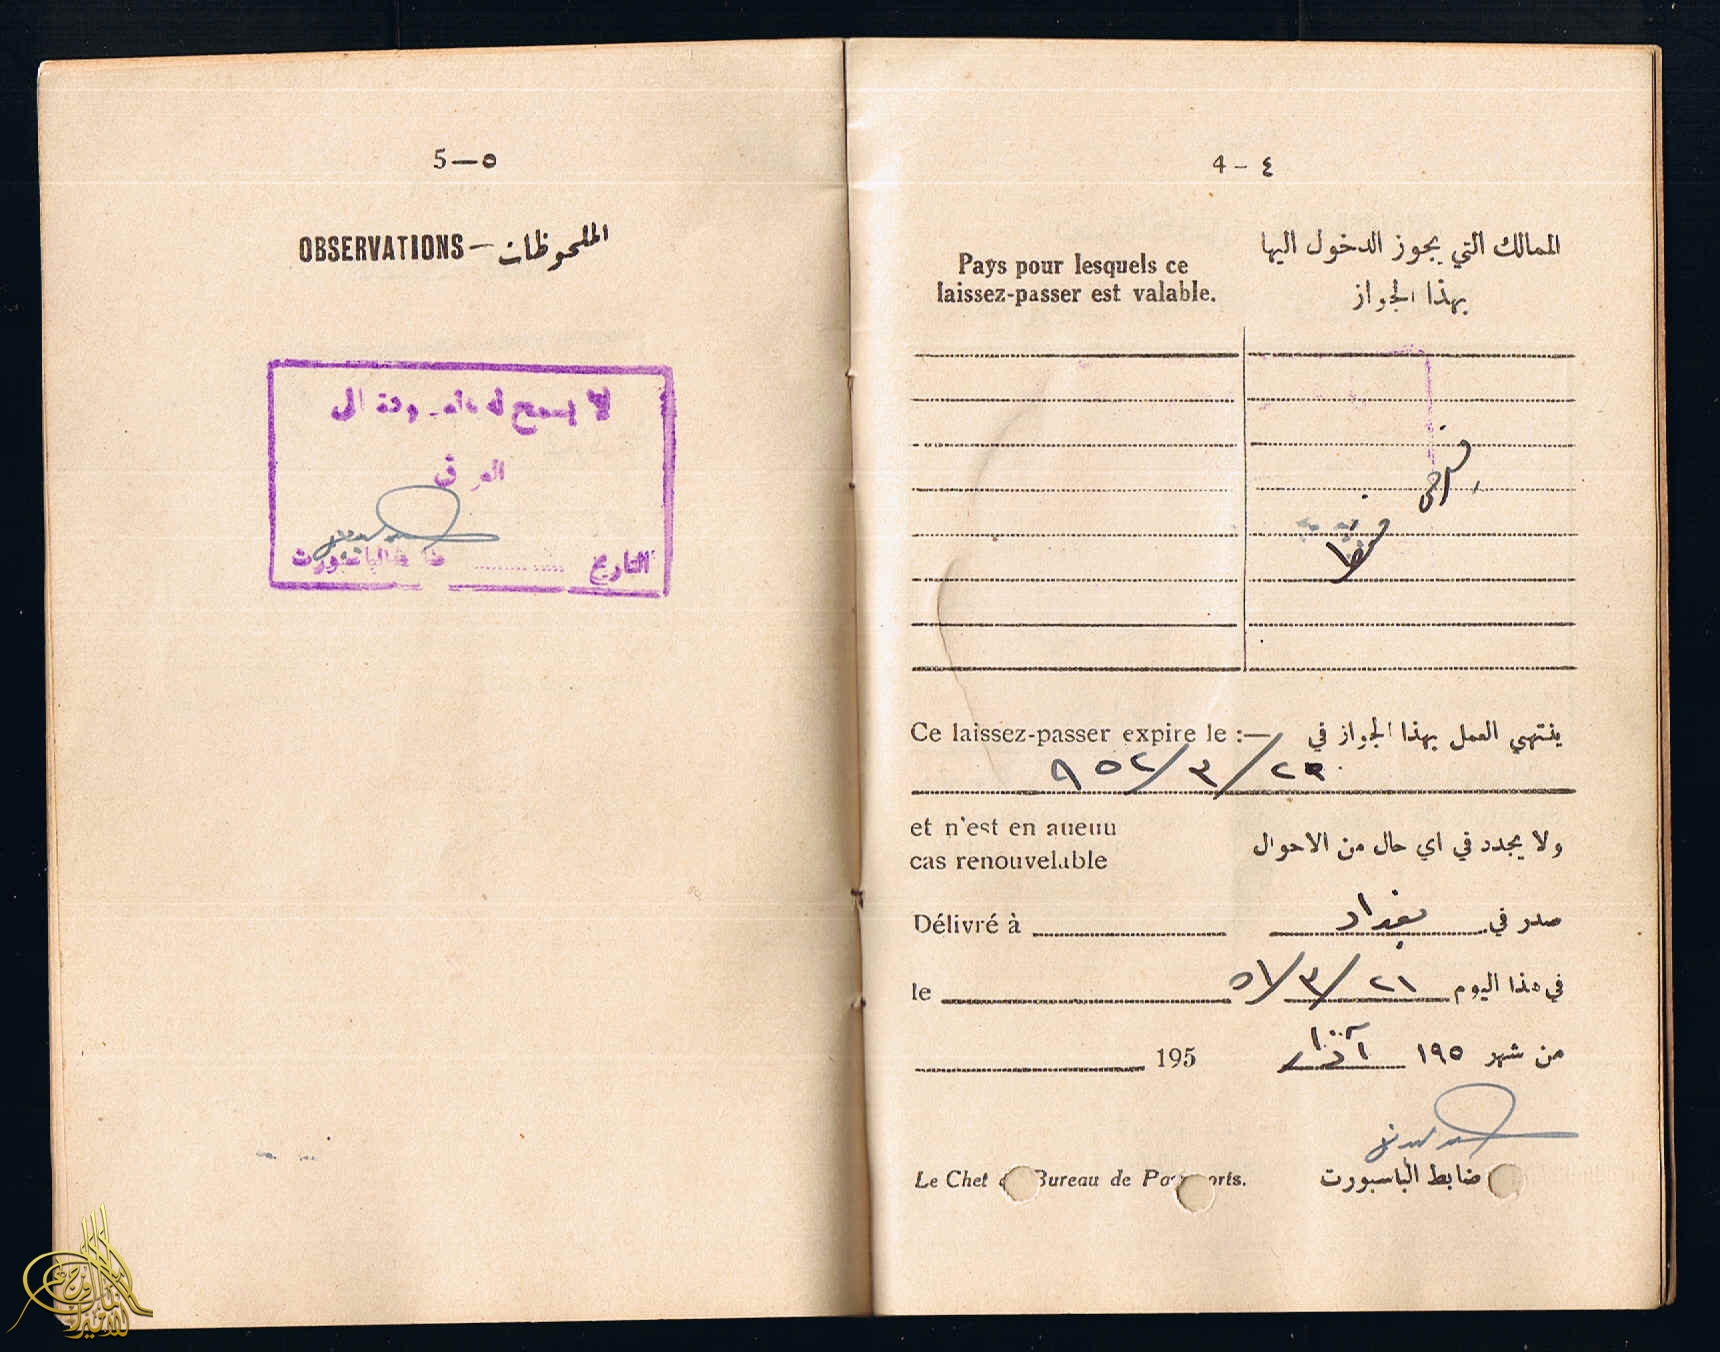 5 — ٥
OBSERVATIONS — الملحوظات
لا يسمح له بالعودة الى
العراق
التاريخ ............ ضابط الباسبورت
4 - ٤
Pays pour lesquels ce
laissez-passer est valable.
الممالك التي يجوز الدخول اليها
بهذا الجواز
فقط
Ce laissez-passer expire le :— ينتهي العمل بهذا الجواز في
٩٥٢/٣/٢٣
et n'est en aucun
cas renouvelable
ولا يجدد في اي حال من الاحوال
Délivré à
صدر في بغداد
le
في هذا اليوم ٢١/٣/٥١
195
من شهر آذار ١٩٥
Le Chef Bureau de Passeports.
ضابط الباسبورت